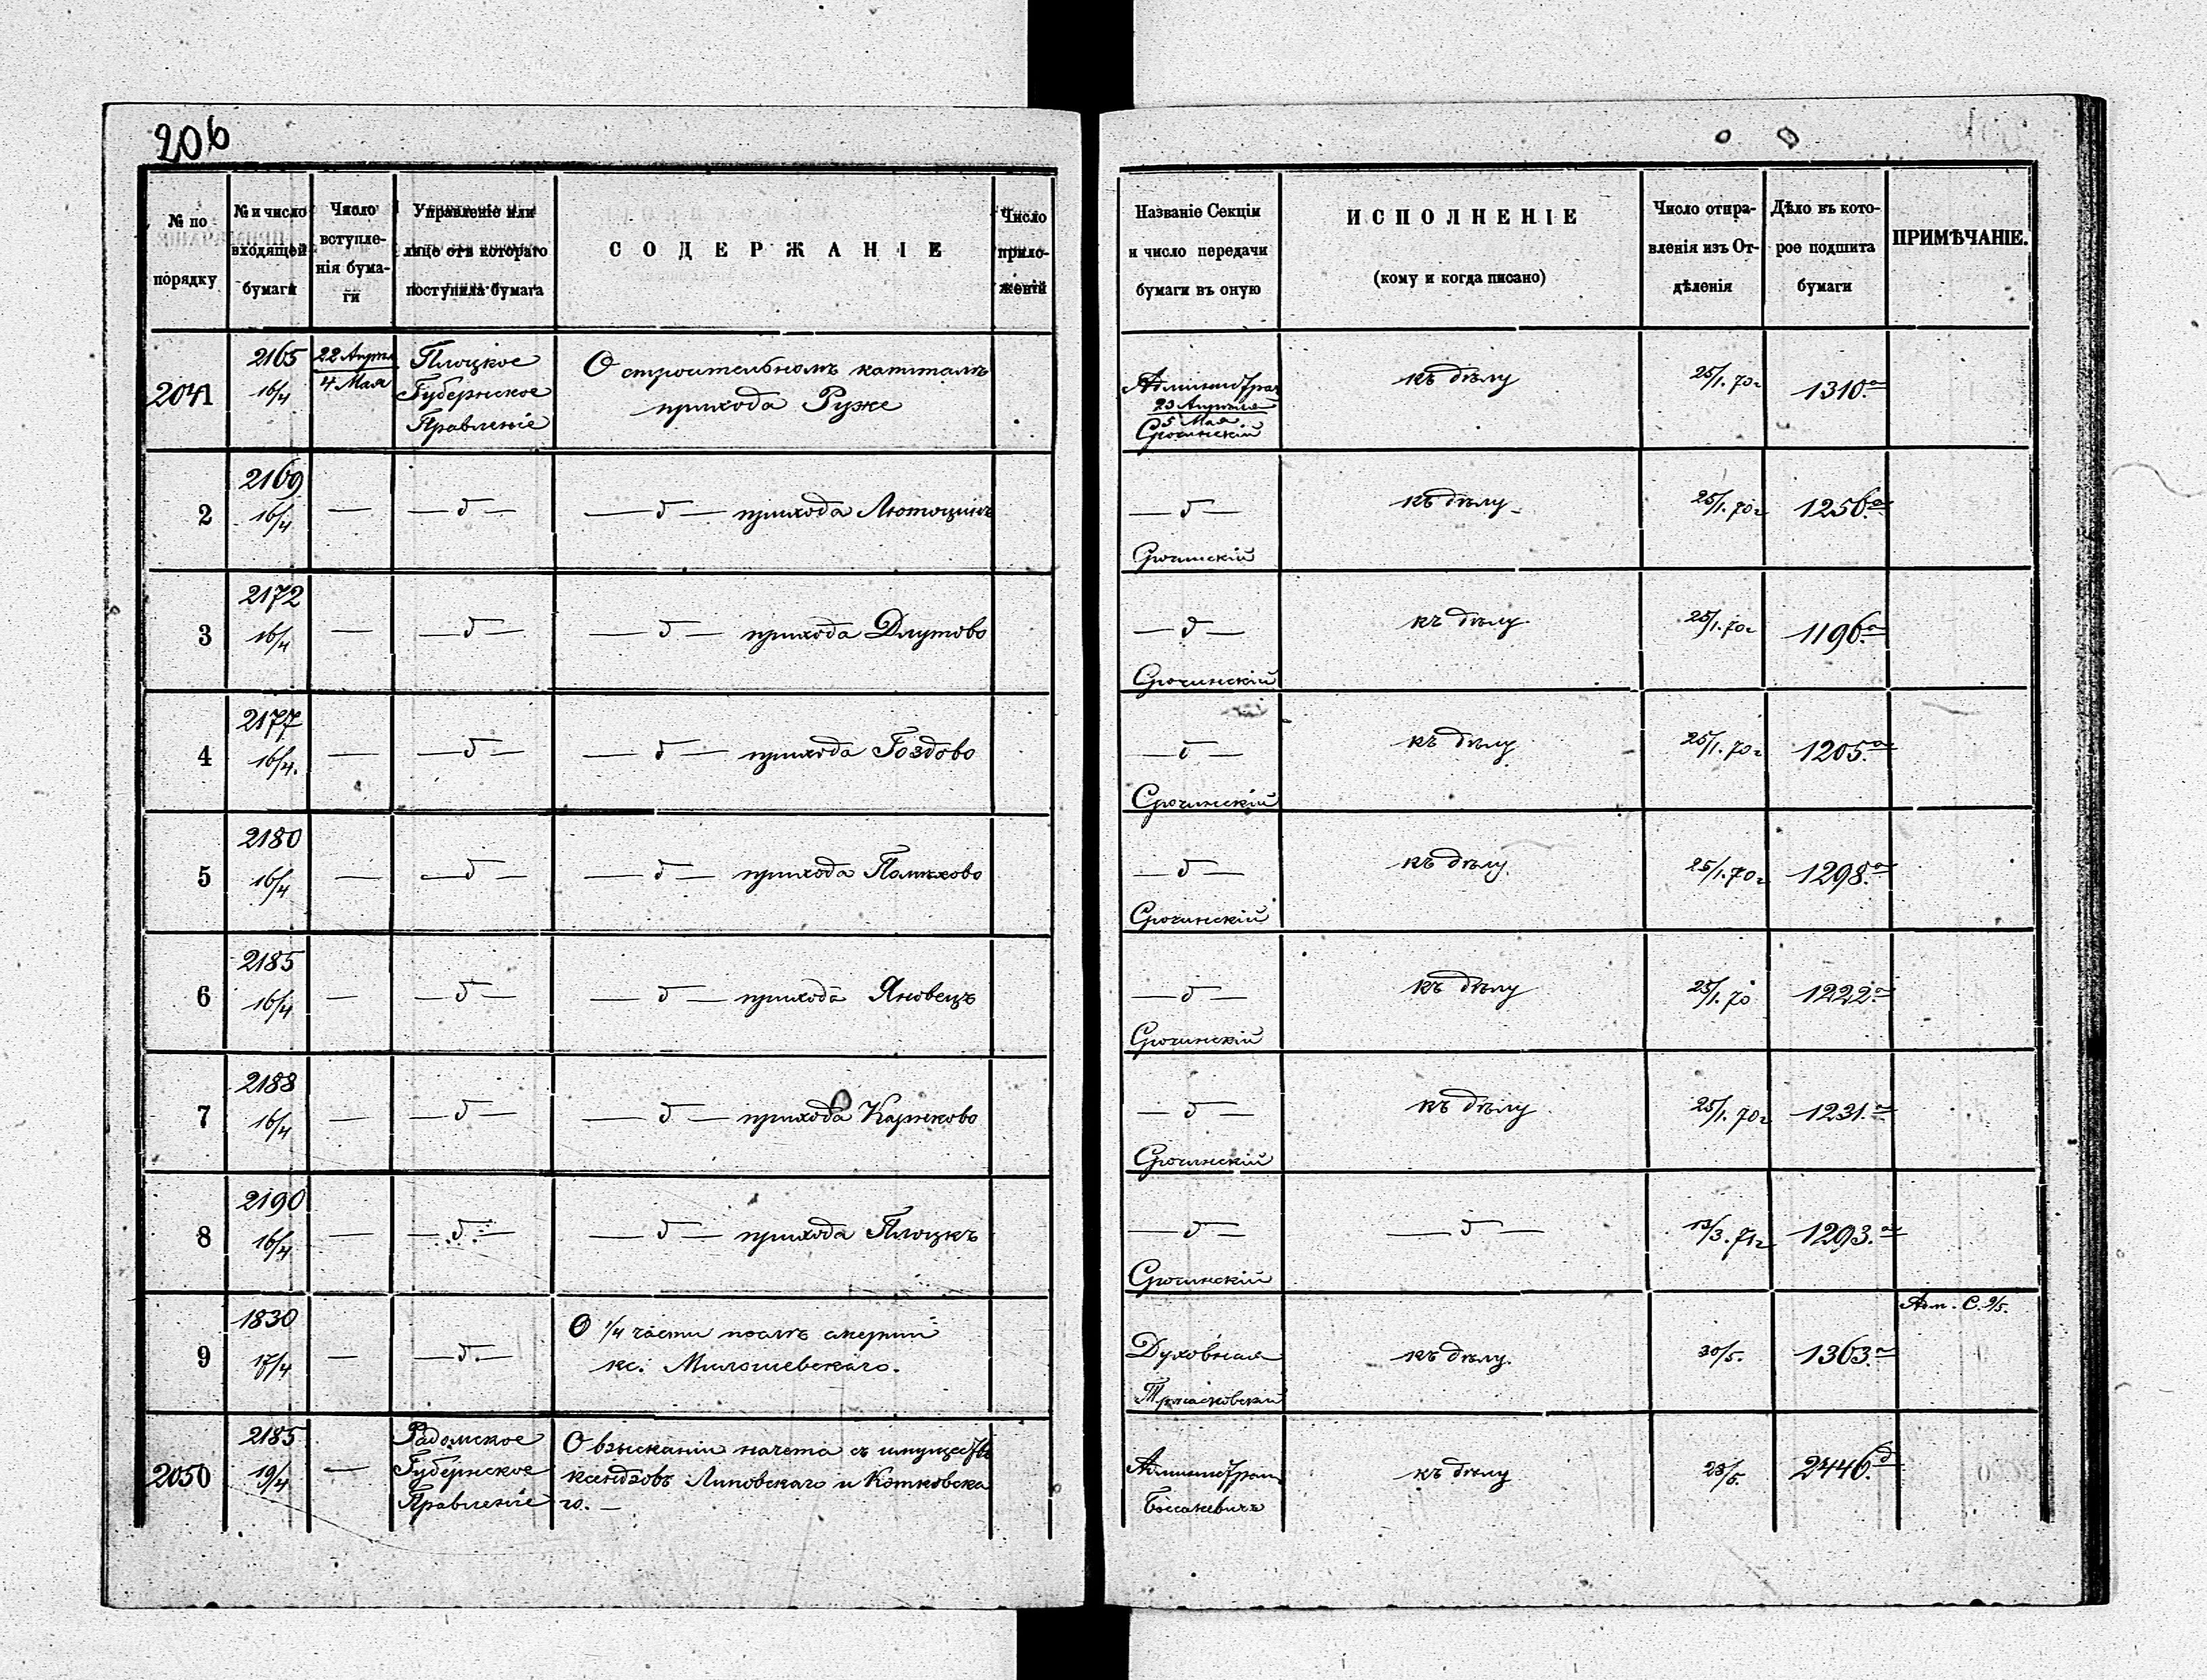 206
№ по порядку
№ и число входящей бумаги
Число вступле-нія бума-ги
Управленіе или лице отъ котораго поступила бумага
СОДЕРЖАНІЕ
Число прило-женій
Названіе Секціи и число передачи бумаги въ оную
ИСПОЛНЕНІЕ (кому и когда писано)
Число отпра-вленія изъ От-дѣленія
Дѣло въ кото-рое подшита бумаги
ПРИМѢЧАНІЕ.
2041 2165 16/4 22 Апрѣля 4 Мая Плоцкое Губернское Правленіе О строительномъ капиталѣ прихода Руже 23 Апрѣля 5 Мая Срочинскій къ дѣлу 25/1. 70г 1310.а
2 2169 16/4 — — д — — д — прихода Лютоцинъ — д — Срочинскій къ дѣлу 25/1. 70г 1256.а
3 2172 16/4 — — д — — д — прихода Длутово — д — Срочинскій къ дѣлу 25/1. 70г 1196.а
4 2177 16/4. — — д — — д — прихода Гоздово — д — Срочинскій къ дѣлу 25/1. 70г 1205.а
5 2180 16/4 — — д — — д — прихода — д — Срочинскій къ дѣлу. 25/1. 70г 1298.а
6 2185 16/4 — — д — — д — прихода Яновецъ — д — Срочинскій къ дѣлу 25/1. 70 1222.а
7 2188 16/4 — — д — — д — прихода Карнково — д — Срочинскій къ дѣлу 25/1. 70г 1231.а
8 2190 16/4 — — д — — д — прихода Плоцкъ — д — Срочинскій — д — 13/3. 71г 1293.а
9 1830 17/4 — — д — О 1/4 части кс. Милошевскаго. Духовная къ дѣлу. 30/5. 1363.а Адм. С. 9/5.
2050 2185 19/4 — Радомское Губернское Правленіе О взысканіи начета съ имуществъ ксендзовъ Липовскаго и Котковска го. — къ дѣлу 28/5. 2446.д